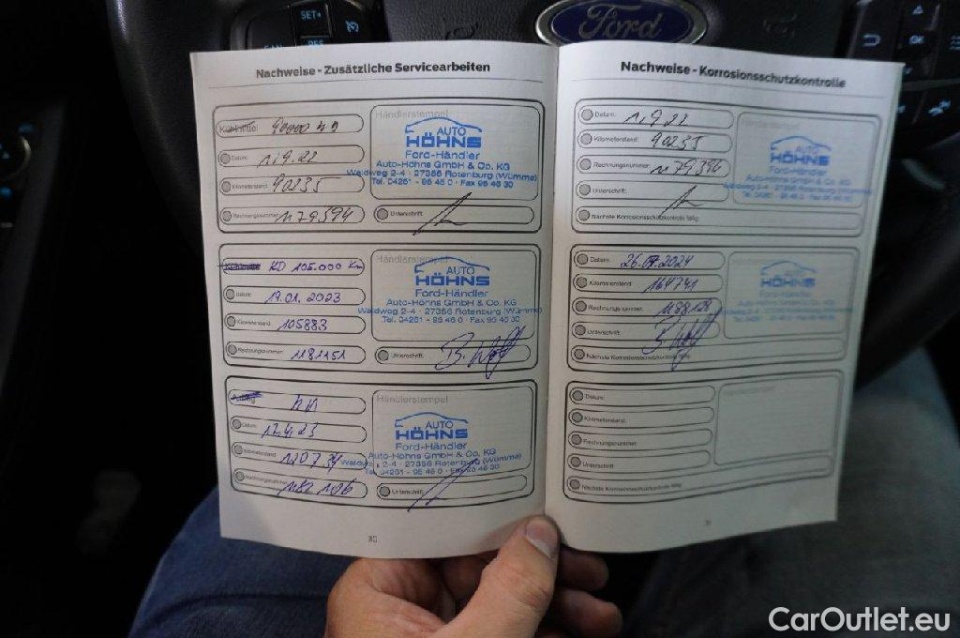 SET+
Ford
OK
Nachweise - Zusätzliche Servicearbeiten
Händlerstempel
Datum: 1.9.22
Kilometerstand: 90235
Rechnungsnummer:
Unterschrift:
AUTO
HÖHNS
Ford-Händler
Auto-Höhns GmbH & Co. KG
Waldweg 2-4 · 27356 Rotenburg (Wümme)
Tel. 04261 - 95 46 0 · Fax 95 46 30
KD 105.000 Km
Händlerstempel
Datum: 17.01.2023
Kilometerstand: 105883
Rechnungsnummer: 1181451
Unterschrift:
AUTO
HÖHNS
Ford-Händler
Auto-Höhns GmbH & Co. KG
Waldweg 2-4 · 27356 Rotenburg (Wümme)
Tel. 04261 - 95 46 0 · Fax 95 46 30
Händlerstempel
Datum: 17.4.23
Kilometerstand:
Rechnungsnummer:
Unterschrift:
AUTO
HÖHNS
Ford-Händler
Auto-Höhns GmbH & Co. KG
Waldweg 2-4 · 27356 Rotenburg (Wümme)
Tel. 04261 - 95 46 0 · Fax 95 46 30
Nachweise - Korrosionsschutzkontrolle
Datum: 1.9.22
Kilometerstand: 90235
Rechnungsnummer:
Unterschrift:
Nächste Korrosionsschutzkontrolle fällig:
AUTO
HÖHNS
Ford-Händler
Auto-Höhns GmbH & Co. KG
Datum: 26.07.2024
Kilometerstand: 164741
Rechnungsnummer:
Unterschrift:
Nächste Korrosionsschutzkontrolle fällig:
AUTO
HÖHNS
Ford-Händler
Auto-Höhns GmbH & Co. KG
Datum:
Kilometerstand:
Rechnungsnummer:
Unterschrift:
Nächste Korrosionsschutzkontrolle fällig:
CarOutlet.eu